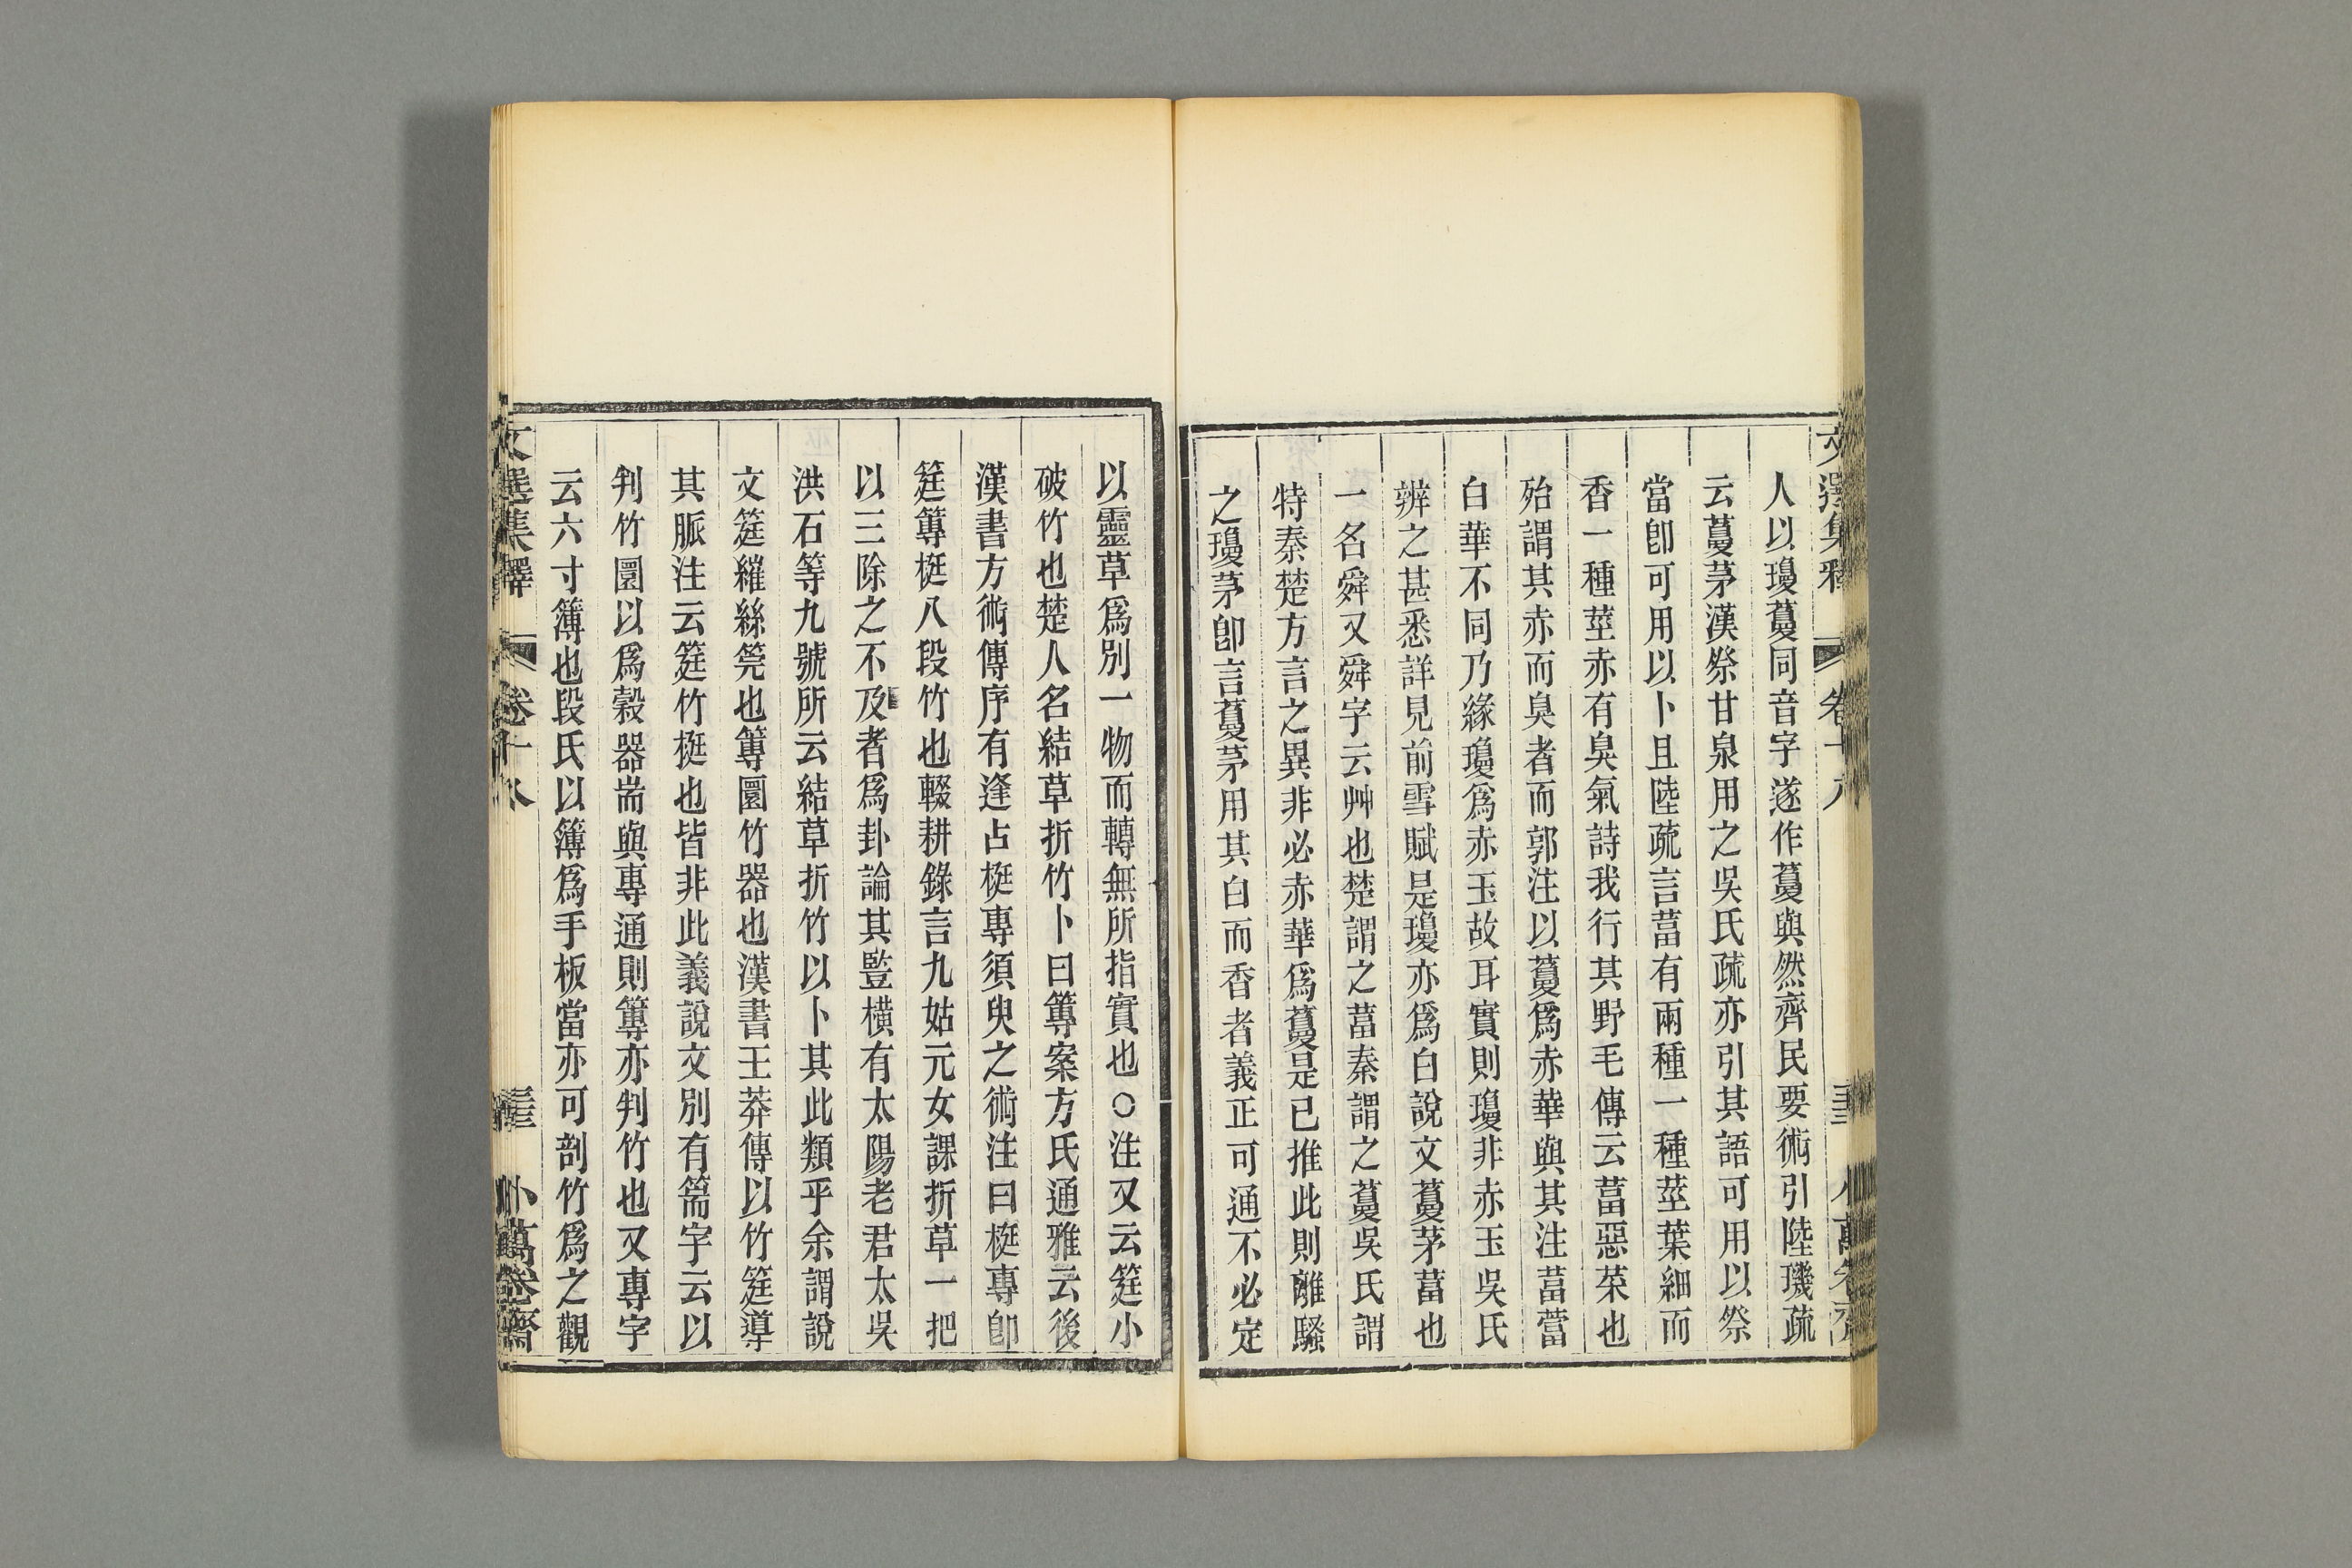 人以瓊藑同音字遂作藑與然齊民要術引陸璣疏
云藑茅漢祭甘泉用之吳氏疏亦引其語可用以祭
當卽可用以卜且陸疏言葍有兩種一種莖葉細而
香一種莖赤有臭氣詩我行其野毛傳云葍惡菜也
殆謂其赤而臭者而郭注以藑爲赤華與其注葍䔰
白華不同乃緣瓊爲赤玉故耳實則瓊非赤玉吳氏
辨之甚悉詳見前雪賦是瓊亦爲白說文藑茅葍也
一名舜又舜字云艸也楚謂之葍秦謂之藑吳氏謂
特秦楚方言之異非必赤華爲藑是已推此則離騷
之瓊茅卽言藑茅用其白而香者義正可通不必定
以靈草爲別一物而轉無所指實也○注又云筳小
破竹也楚人名結草折竹卜曰篿案方氏通雅云後
漢書方術傳序有逢占梃專須臾之術注曰梃專卽
筳篿梃八段竹也輟耕錄言九姑元女課折草一把
以三除之不及者爲卦論其豎橫有太陽老君太吳
洪石等九號所云結草折竹以卜其此類乎余謂說
文筳繀絲筦也篿圜竹器也漢書王莽傳以竹筳導
其脈注云筳竹梃也皆非此義說文別有篅字云以
判竹圜以爲穀器耑與專通則篿亦判竹也又專字
云六寸簿也段氏以簿爲手板當亦可剖竹爲之觀
文選集釋 卷十八